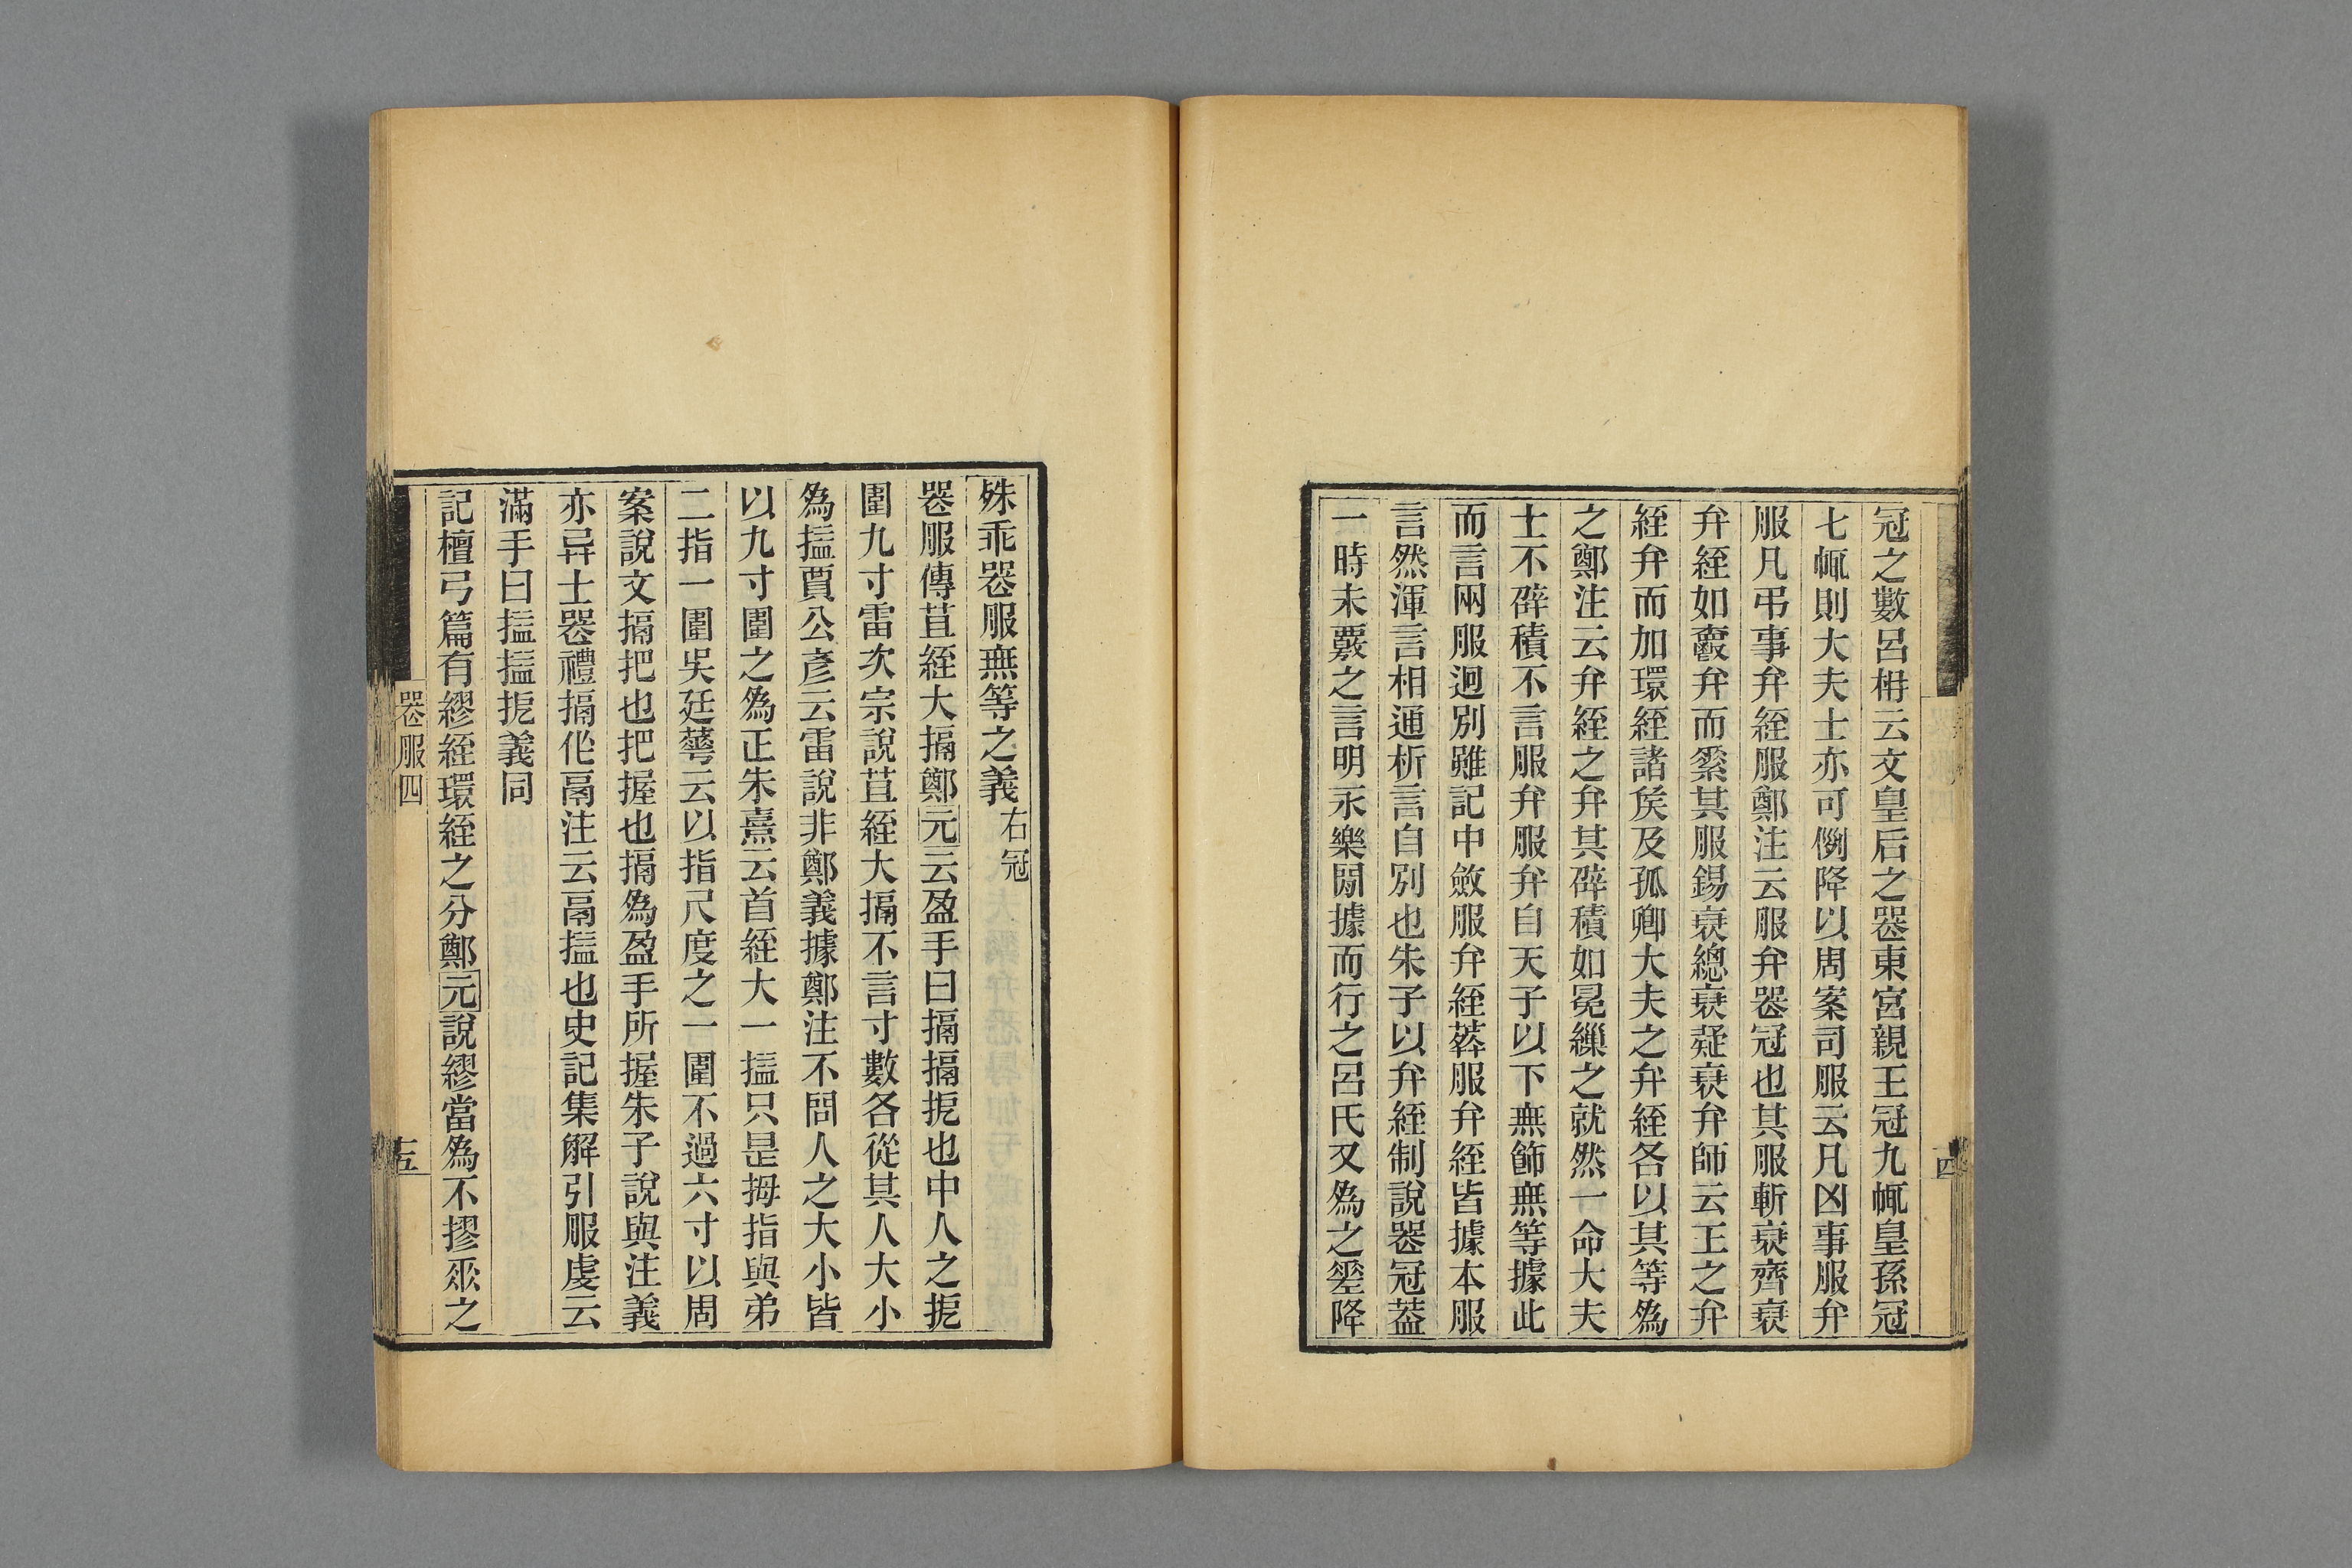 冠之數呂柟云文皇后之喪東宮親王冠九㡇皇孫冠
七㡇則大夫士亦可例降以周案司服云凡凶事服弁
服凡弔事弁絰服鄭注云服弁喪冠也其服斬衰齊衰
弁絰如爵弁而素其服錫衰緦衰疑衰弁師云王之弁
絰弁而加環絰諸矦及孤卿大夫之弁絰各以其等爲
之鄭注云弁絰之弁其辟積如冕繅之就然一命大夫
士不辟積不言服弁服弁自天子以下無飾無等據此
而言兩服迥別雖記中斂服弁絰葬服弁絰皆據本服
言然渾言相通析言自別也朱子以弁絰制說喪冠葢
一時未覈之言明永樂閒據而行之呂氏又爲之䇓降
殊乖喪服無等之義右冠
喪服傳苴絰大搹鄭元云盈手曰搹搹扼也中人之扼
圍九寸雷次宗說苴絰大搹不言寸數各從其人大小
爲搤賈公彥云雷說非鄭義據鄭注不問人之大小皆
以九寸圍之爲正朱熹云首絰大一搤只是拇指與弟
二指一圍吳廷華云以指尺度之一圍不過六寸以周
案說文搹把也把握也搹爲盈手所握朱子說與注義
亦异士喪禮搹作鬲注云鬲搤也史記集解引服虔云
滿手曰搤搤扼義同
記檀弓篇有繆絰環絰之分鄭元說繆當爲不摎垂之
喪服四
五
四